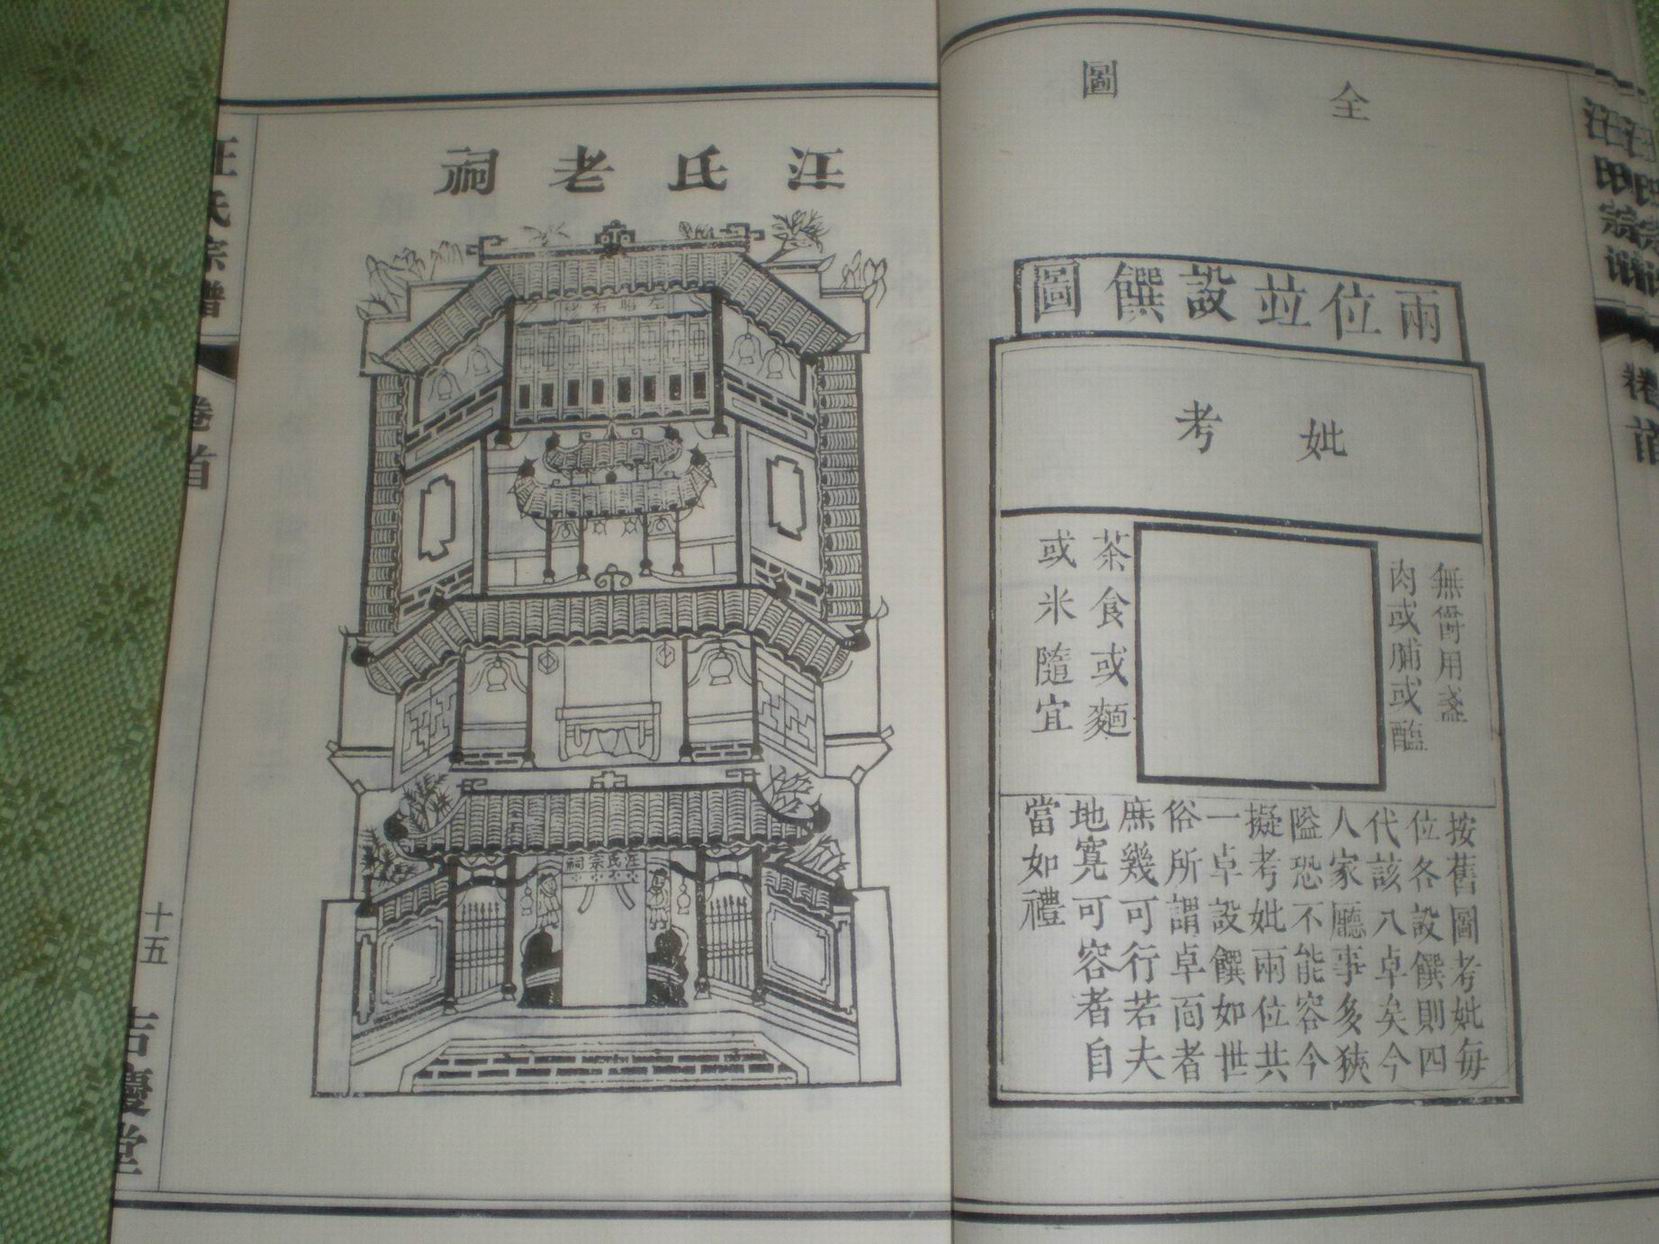 全圖
兩位並設饌圖
妣考
無爵用盞
肉或脯或醢
茶食或麵
或米隨宜
按舊圖考妣每
位各設饌則四
代該八卓矣今
人家廳事多狹
隘恐不能容今
擬考妣兩位共
一卓設饌如世
俗所謂卓面者
庶幾可行若夫
地寬可容者自
當如禮
汪氏宗譜
卷首
汪氏老祠
汪氏宗祠
汪氏宗譜
卷首
十五
慶堂